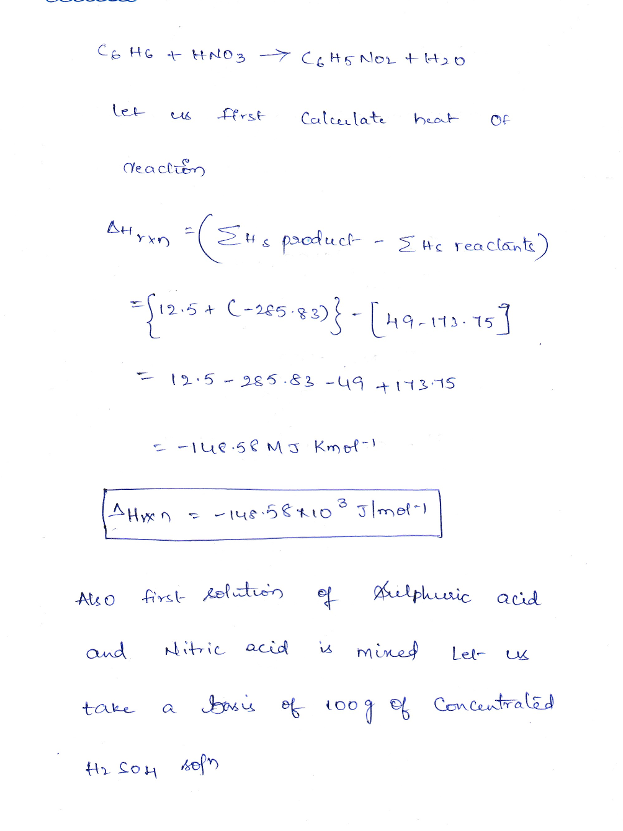 C6 H6 + HNO3 → C6H5NO2 + H2O
let us first Calculate heat OF
reaction
ΔHrxn = (ΣHs product - ΣHc reactants)
= {12.5 + (-285.83)} - [49-173.75]
= 12.5 - 285.83 - 49 + 173.75
= -148.58 MJ Kmol-1
ΔHrxn = -148.58×10³ J/mol-1
Also first solution of Sulphuric acid
and Nitric acid is mixed Let us
take a basis of 100g of Concentrated
H2 SO4 sofn